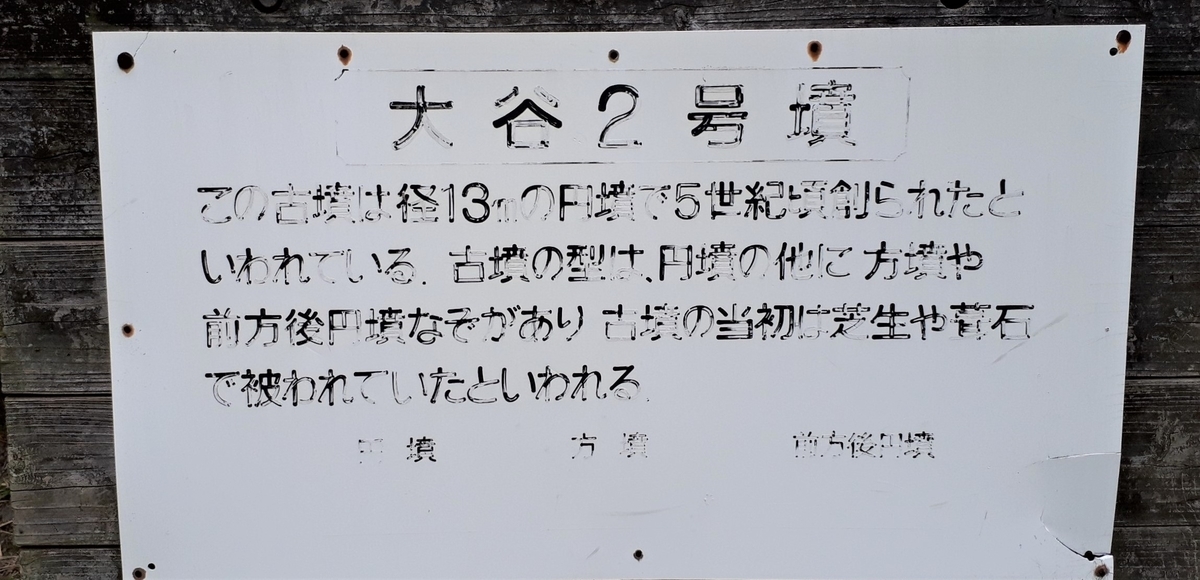 大谷2号墳
この古墳は径13mの円墳で5世紀頃創られたと
いわれている。古墳の型は、円墳の他に方墳や
前方後円墳なぞがあり古墳の当初は芝生や葺石
で被われていたといわれる。
円墳 方墳 前方後円墳